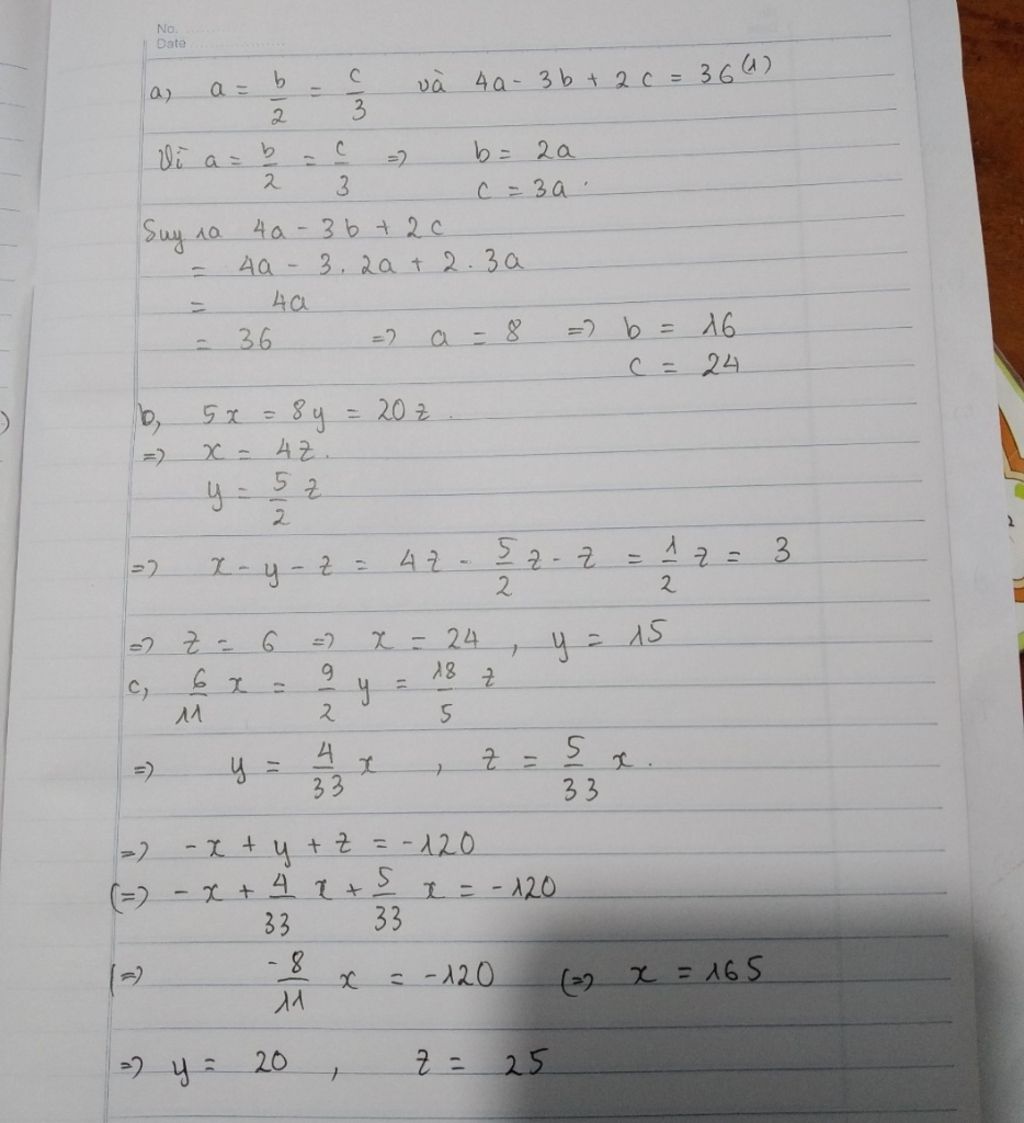 No.
Date
a, a = b/2 = c/3 và 4a - 3b + 2c = 36 (1)
Vì a = b/2 = c/3 => b = 2a
c = 3a.
Suy ra 4a - 3b + 2c
= 4a - 3.2a + 2.3a
= 4a
= 36 => a = 8 => b = 16
c = 24
b, 5x = 8y = 20z.
=> x = 4z.
y = 5/2 z
=> x - y - z = 4z - 5/2 z - z = 1/2 z = 3
=> z = 6 => x = 24, y = 15
c, 6/11 x = 9/2 y = 18/5 z
=> y = 4/33 x, z = 5/33 x.
=> -x + y + z = -120
(=> -x + 4/33 x + 5/33 x = -120
(=> -8/11 x = -120 (=> x = 165
=> y = 20, z = 25